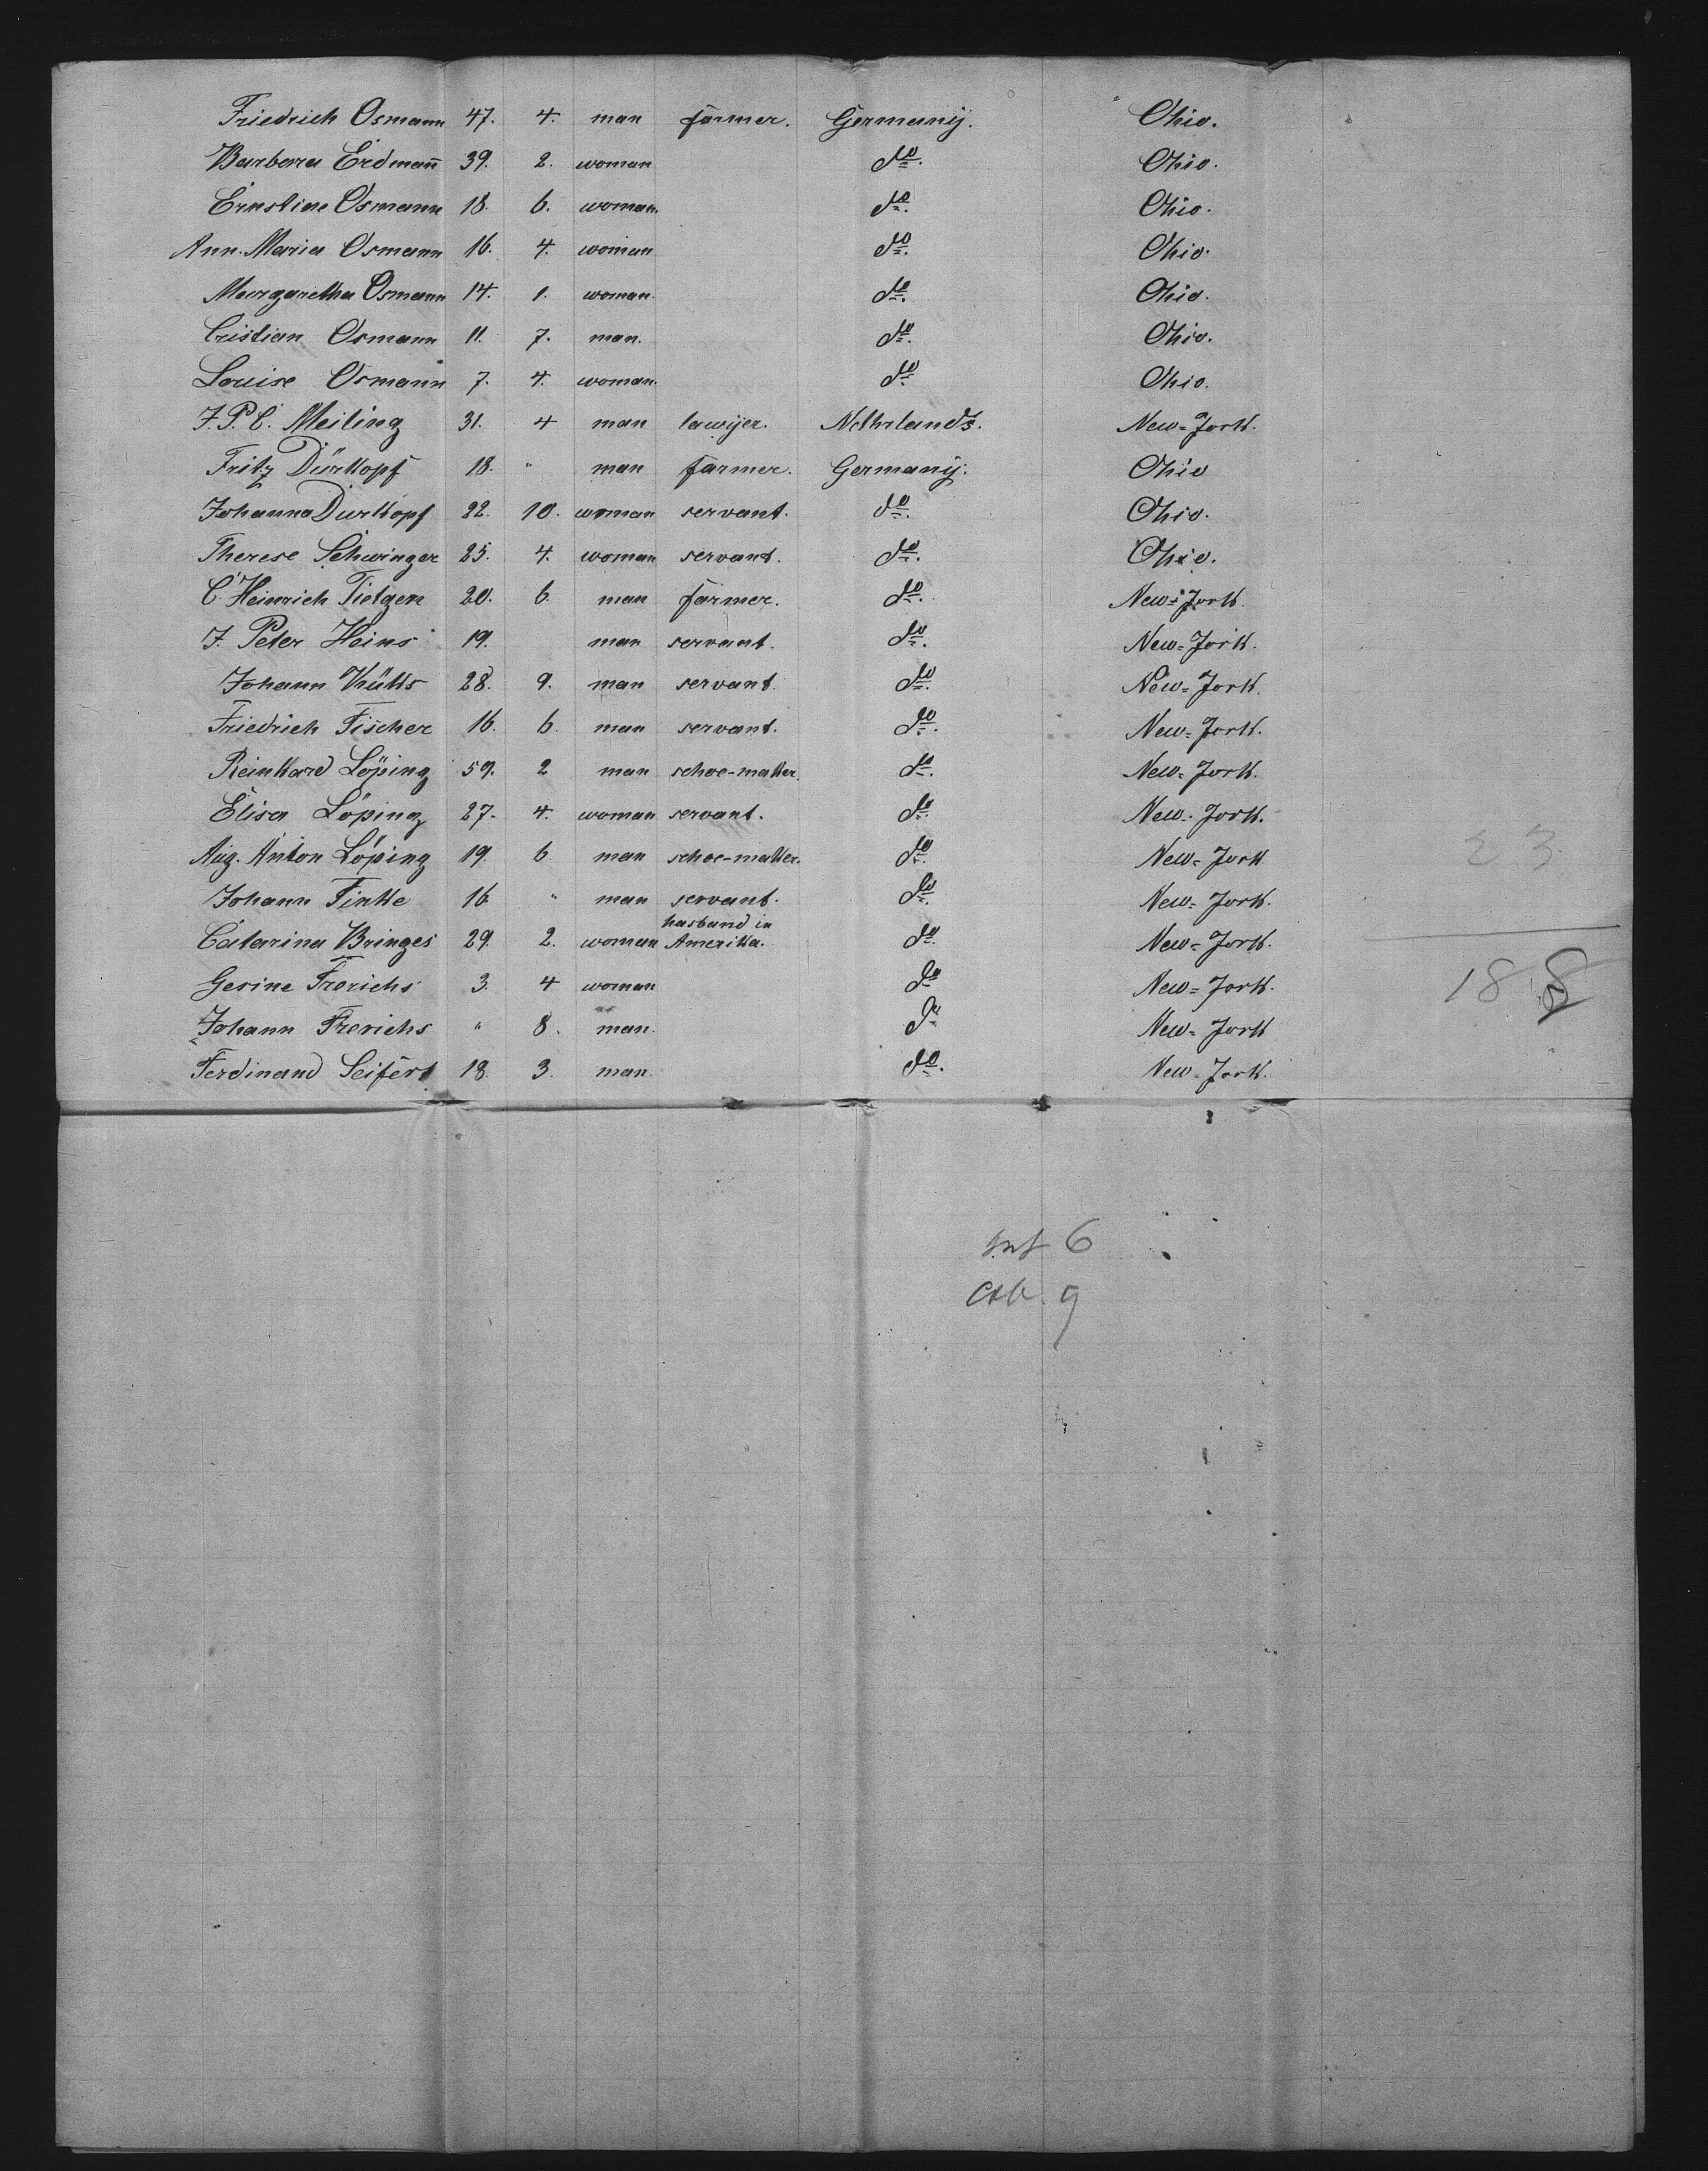 Friedrich Osmann 47. 4. man farmer. Germanij. Ohio.
Barbara Erdmañ 39. 2. woman do. Ohio.
Ernstine Osmann 18. 6. woman. do. Ohio.
Ann. Maria Osmann 16. 4. woman do. Ohio.
Margaretha Osmann 14. 1. woman. do. Ohio.
Cristian Osmann 11. 7. man. do. Ohio.
Louise Osmann 7. 4. woman. do. Ohio.
J. P. C. Meiling 31. 4 man lawijer. Nethrlands. New=Jork.
Fritz Dürkopf 18. " man farmer. Germanij. Ohio
Johanna Durkopf 22. 10. woman servant. do. Ohio.
Therese Schwinger 25. 4. woman servant. do. Ohio.
C. Heinrich Tietgen 20. 6. man farmer. do. New=Jork.
J. Peter Heins 19. man servant. do. New=Jork.
Johann 28. 9. man servant. do. New=Jork.
Friedrich Fischer 16. 6. man servant. do. New=Jork.
Reinhard Löping 59. 2 man schoe-maker. do. New=Jork.
Elisa Löping 27. 4. woman servant. do. New=Jork.
Aug. Anton Löping 19. 6. man schoe-maker. do. New=Jork
Johann Finke 16 " man servant. do. New=Jork.
Catarina Bringes 29. 2. woman husband in Amerika. do. New=Jork.
Gesine Frerichs 3. 4 woman do New=Jork.
Johann Frerichs " 8. man. do New=Jork
Ferdinand Seifert 18. 3. man. do. New=Jork.
23
188
Inf 6
Cab. 9